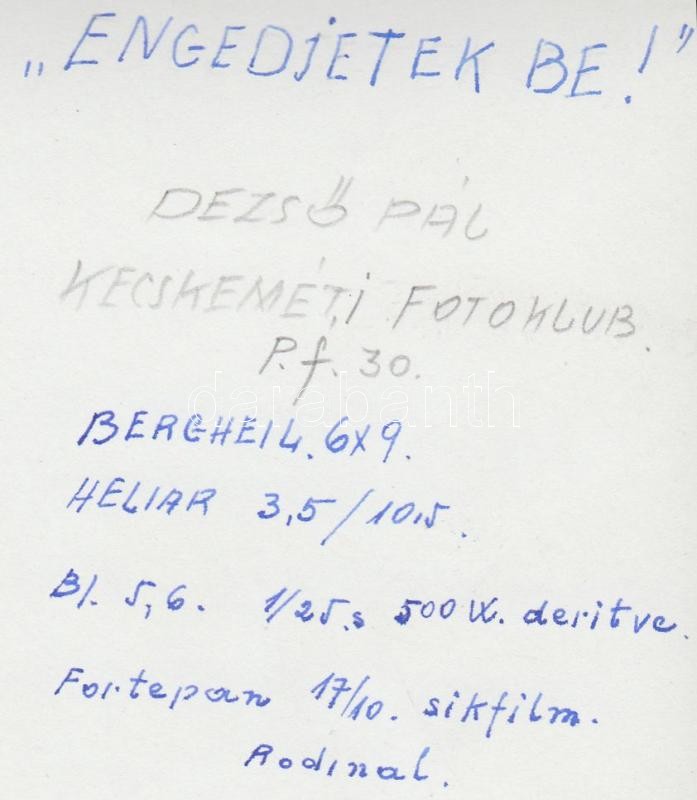 „ENGEDJETEK BE!”
DEZSŐ PÁL
KECSKEMÉTI FOTOKLUB.
P.f. 30.
darabanth
BERGHEIL. 6x9.
HELIAR 3,5/10,5.
Bl. 5,6. 1/25.s 500 W. deritve.
Fortepan 17/10. sikfilm.
Rodinal.